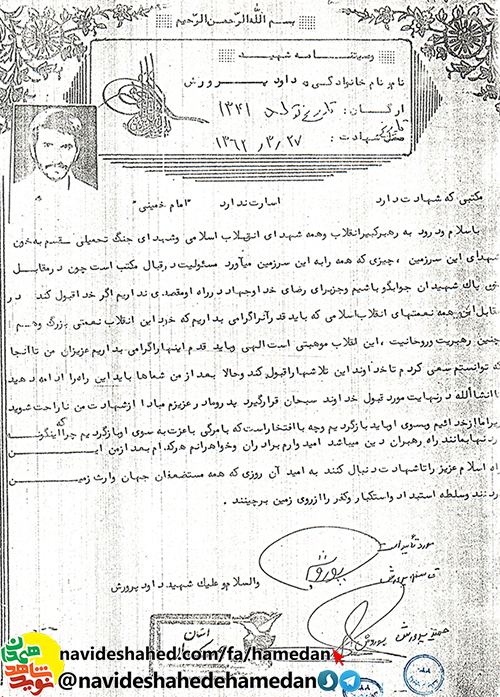 بسم الله الرحمن الرحیم
وصیتنامه شهید
نام و نام خانوادگی: داود پرورش
ارگان: تاریخ تولد ۱۳۴۱
تاریخ شهادت: ۱۳۶۲/۳/۲۷
مکتبی که شهادت دارد اسارت ندارد "امام خمینی"
باسلام ودرود به رهبرکبیرانقلاب وهمه شهدای انقلاب اسلامی وشهدای جنگ تحمیلی قسم به خون
شهدای این سرزمین، چیزی که همه رابه این سرزمین میآورد مسئولیت درقبال مکتب است چون درمقابل
خون پاک شهیدان جوابگو باشیم وجزبرای رضای خدا وجهاد درراه اومقصدی نداریم اگر خدا قبول کند در
مقابل این همه نعمتهای انقلاب اسلامی که باید قدرآنراگرامی بداریم که خود این انقلاب نعمتی بزرگ وهم
چنین رهبریت وروحانیت، این انقلاب موهبتی است الهی وباید قدم اینهاراگرامی بداریم عزیزان من تاآنجا
که توانستم سعی کردم تاخداوند این تلاشهاراقبول کند وحالا بعد از من شماها باید این راه را ادامه دهید
تاانشاالله درنهایت مورد قبول خداوند سبحان قرارگیرد پدرومادرعزیزم مبادا ازشهادت من ناراحت شوید
زیرا ماازخدائیم وبسوی اوباید بازگردیم وچه باافتخاراست که بامرگی باعزت به سوی اوبازگردیم چراکه اینگونه
درتنهابمانند راه رهبران دین میباشد امید وارم برادران وخواهرانم هرکدام بعد ازمن این
راه اسلام عزیز راتاشهادت دنبال کنند به امید آن روزی که همه مستضعفان جهان وارث زمین
گردند وسلطه استبداد واستکبار وکفر راازروی زمین برچینند.
مورد تأیید است
والسلام علیک شهید داود پرورش
پرورش
navideshahed.com/fa/hamedan
@navideshahedehamedan